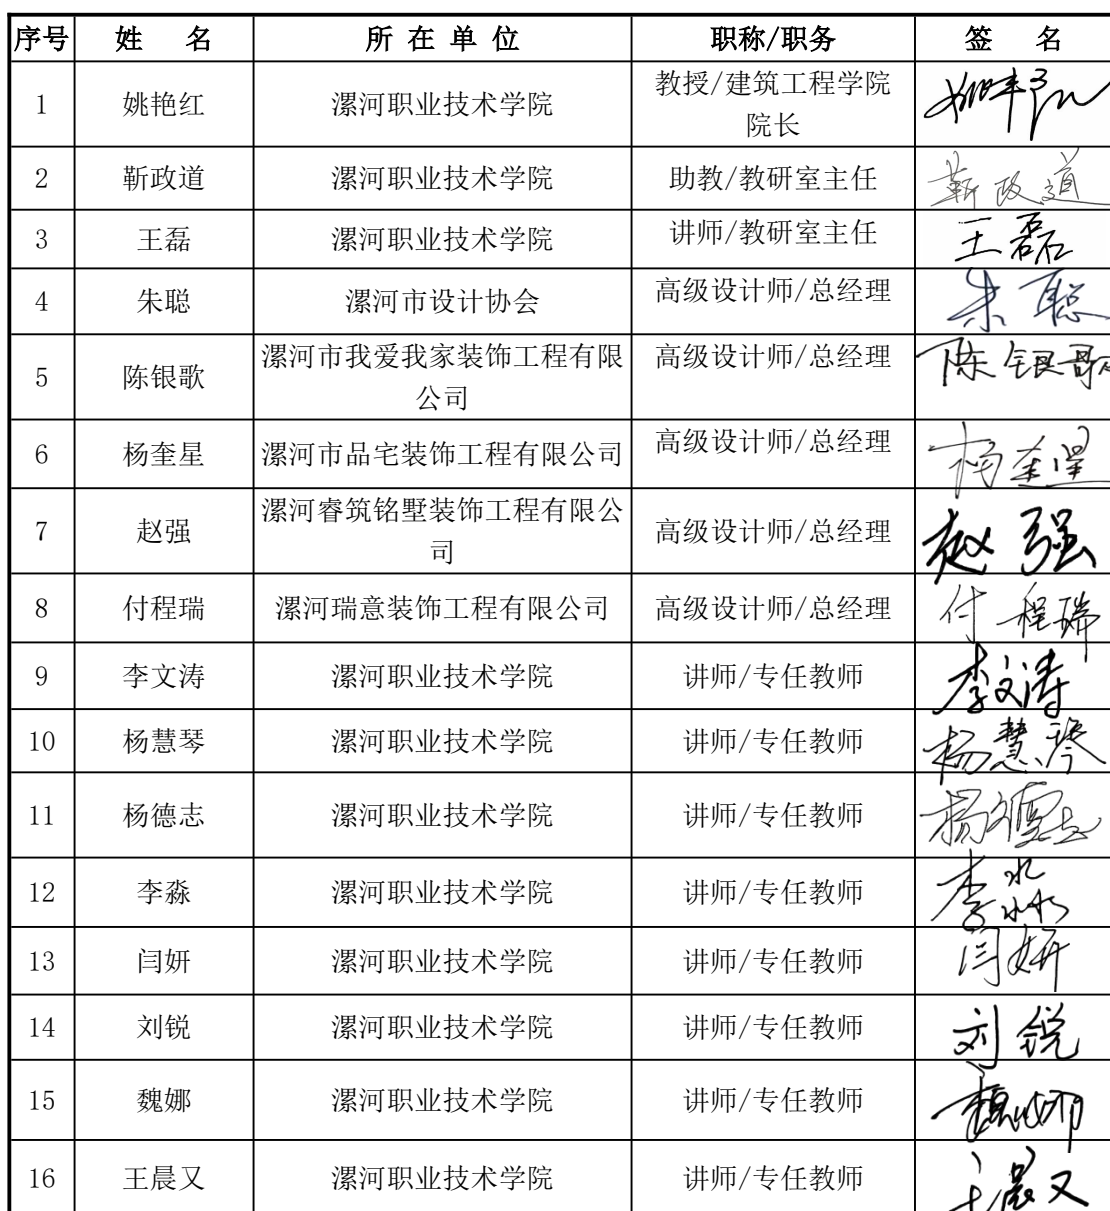 序号 姓 名 所 在 单 位 职称/职务 签 名
1 姚艳红 漯河职业技术学院 教授/建筑工程学院
院长 姚艳红
2 靳政道 漯河职业技术学院 助教/教研室主任 靳政道
3 王磊 漯河职业技术学院 讲师/教研室主任 王磊
4 朱聪 漯河市设计协会 高级设计师/总经理 朱聪
5 陈银歌 漯河市我爱我家装饰工程有限
公司 高级设计师/总经理 陈银歌
6 杨奎星 漯河市品宅装饰工程有限公司 高级设计师/总经理 杨奎星
7 赵强 漯河睿筑铭墅装饰工程有限公
司 高级设计师/总经理 赵强
8 付程瑞 漯河瑞意装饰工程有限公司 高级设计师/总经理 付程瑞
9 李文涛 漯河职业技术学院 讲师/专任教师 李文涛
10 杨慧琴 漯河职业技术学院 讲师/专任教师 杨慧琴
11 杨德志 漯河职业技术学院 讲师/专任教师 杨德志
12 李淼 漯河职业技术学院 讲师/专任教师 李淼
13 闫妍 漯河职业技术学院 讲师/专任教师 闫妍
14 刘锐 漯河职业技术学院 讲师/专任教师 刘锐
15 魏娜 漯河职业技术学院 讲师/专任教师 魏娜
16 王晨又 漯河职业技术学院 讲师/专任教师 王晨又